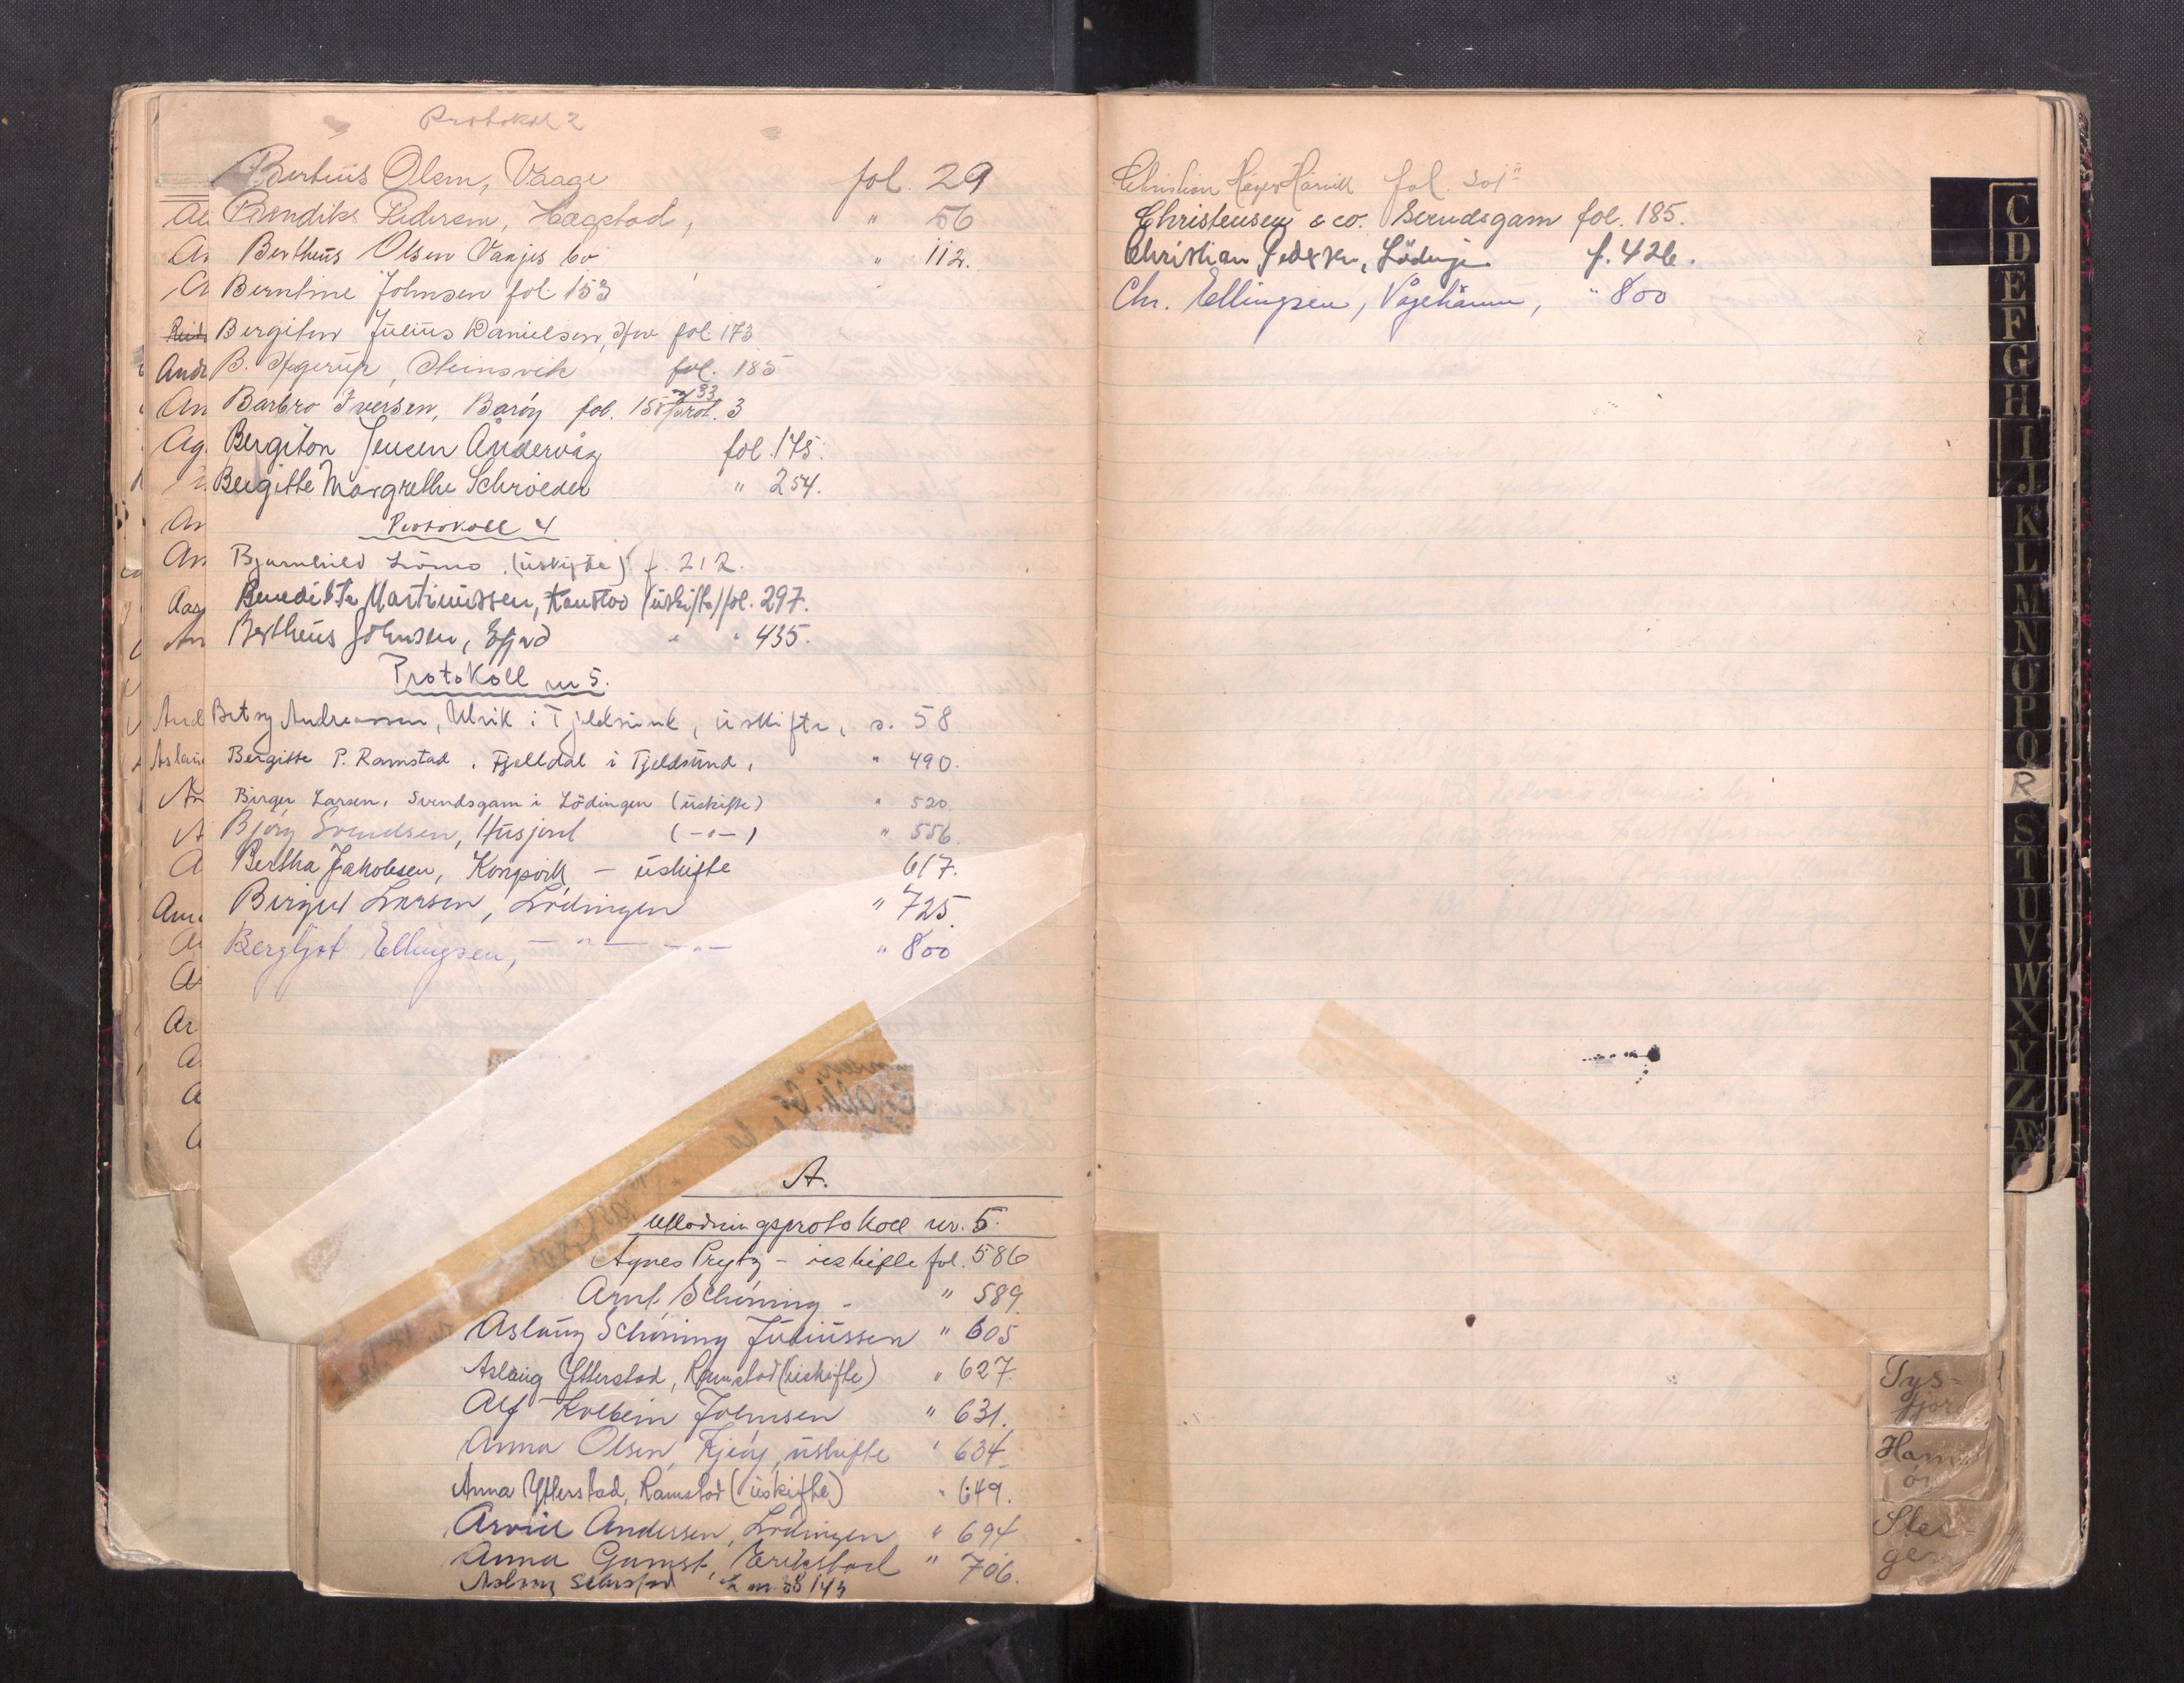 Protokol 2
Bertheus Olsen, Vaage fol. 29
Bendiks Pedersen, Hægstad, " 56
Bertheus Olsen Vaajes bo " 112.
Berntine Johnsen fol. 153
Bergiton Julius Danielsen, fol. 173
B. Hgerup, Steinsvik fol. 185
Barbro Iversen, Barøy fol. 158 prot. 3
Bergiton Jensen Åndervåg fol. 175.
Bergitte Margrethe Schrøeder " 254.
Protokoll 4
Bjarnhild Lømo (uskifte) f. 212.
Benedikte Martinussen, Kanstad (uskifte) fol. 297.
Bertheus Johnsen, Efjord " " 435.
Protokoll nr 5.
Betzy Andreassen, Ulvik i Tjeldsund, uskifte, s. 58
Bergitte P. Ramstad, Fjelldal i Tjeldsund, " 490.
Birger Larsen, Svendsgam i Lödingen (uskifte) " 520.
Bjørg Svendsen, Husjord (-"-) " 556.
Bertha Jakobsen, Kongsvik - uskifte 617.
Birger Larsen, Lödingen " 725.
Bergljot Ellingsen, -"- -"- " 800
A.
Utlodningsprotokoll nr. 5.
Agnes Prytz - uskifte fol. 586
Arnt Schøning - " 589.
Aslaug Schøning Juliussen " 605
Aslaug Ytterstad, Ramstad (uskifte) " 627.
Alf Kolbein Johnsen " 631.
Anna Olsen, Kjeøy, uskifte " 634.
Anna Ytterstad, Ramstad (uskifte) " 649.
Arvid Andersen, Lödingen " 694
Anna Gamst, Erikstad " 706.
Aslaug
Christian fol. 301
Christensen & co. Svendsgam fol. 185.
Christian Pedersen, Lödingen f. 426.
Chr. Ellingsen, Vågehamn, " 800
C
D
E
F
G
H
I
J
K
L
M
N
O
P
Q
R
S
T
U
V
W
X
Y
Z
Æ
Tys-
fjord
Ham
ør
Stei-
gen